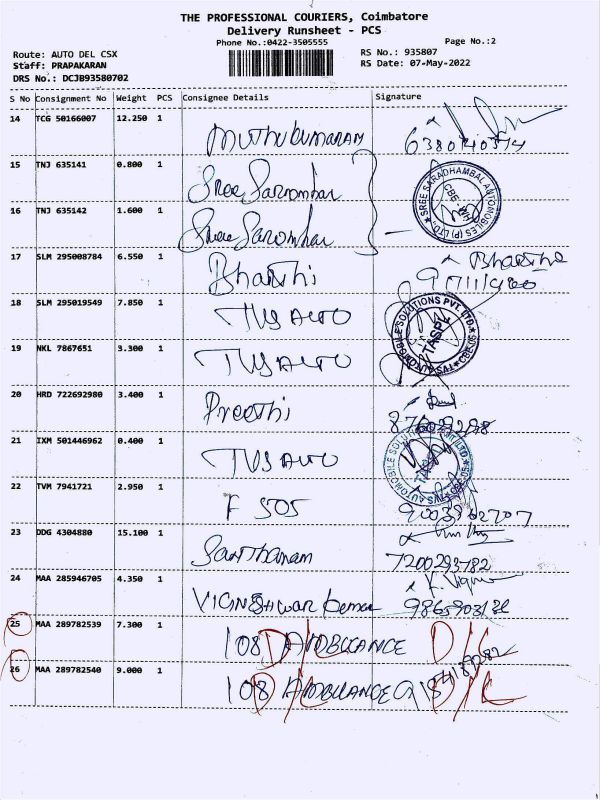 THE PROFESSIONAL COURIERS, Coimbatore
Delivery Runsheet - PCS
Phone No.:0422-3505555 Page No.:2
Route: AUTO DEL CSX RS No.: 935807
Staff: PRAPAKARAN RS Date: 07-May-2022
DRS No.: DCJB93580702
S No Consignment No Weight PCS Consignee Details Signature
14 TCG 50166007 12.250 1 MUTHUKUMARAM
15 TNJ 635141 0.800 1 Sree
SREE SARADHAMBAL AUTOMOBILES (P) LTD.,
16 TNJ 635142 1.600 1 Sree
17 SLM 295008784 6.550 1 Bharthi
18 SLM 295019549 7.850 1 TVS AUTO
TASPL
19 NKL 7867651 3.300 1 TVS AUTO
20 HRD 722692980 3.400 1 Preethi
21 IXM 501446962 0.400 1 TVS AUTO
22 TVM 7941721 2.950 1 F SOS
23 DDG 4304880 15.100 1 Santhanam 7200293782
24 MAA 285946705 4.350 1 VIGNESHWAR Kumar
25 MAA 289782539 7.300 1 108 AMBULANCE D/C
26 MAA 289782540 9.000 1 108 AMBULANCE D/C